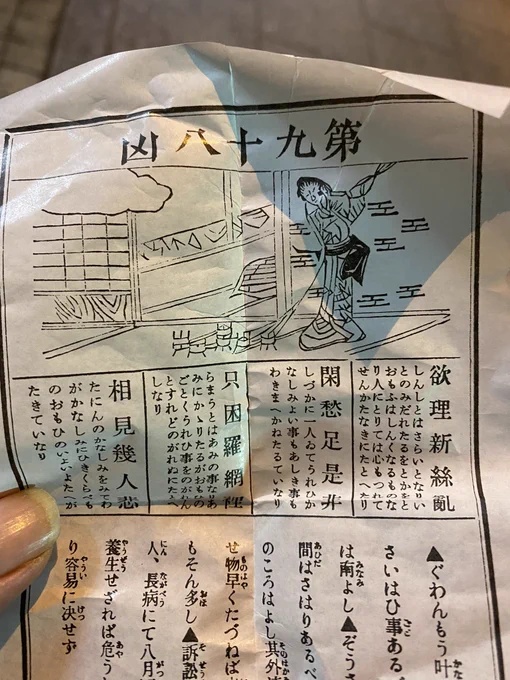 第九十八凶
欲理新絲亂
しんしとはさらいとなりい
とのみだれたるをとかをと
おもふはしんくなるものな
り人にとりては心もつれて
せんかたなきにたとへたり
閑愁足是非
しづかに一人ゐてうれひか
なしみよい事もあしき事も
わきまへかねたるていなり
只困羅網裡
らまうとはあみの事なあ
みにかゝりたるがおもの
ごとくうれひ事をのがれん
とすれどのがれぬにたへ
しなり
相見幾人悲
たにんのかなしみをみてわ
がかなしみにひきくらべ
のおもひの
たきていなり
▲ぐわんもう叶
さいはひ事ある
は南よし▲ぞうさ
間はさはりあるべ
のころはよし其外
せ物早くたづねば
もそん多し▲訴訟
人、長病にて八月
養生せざれば危う
り容易に決せず